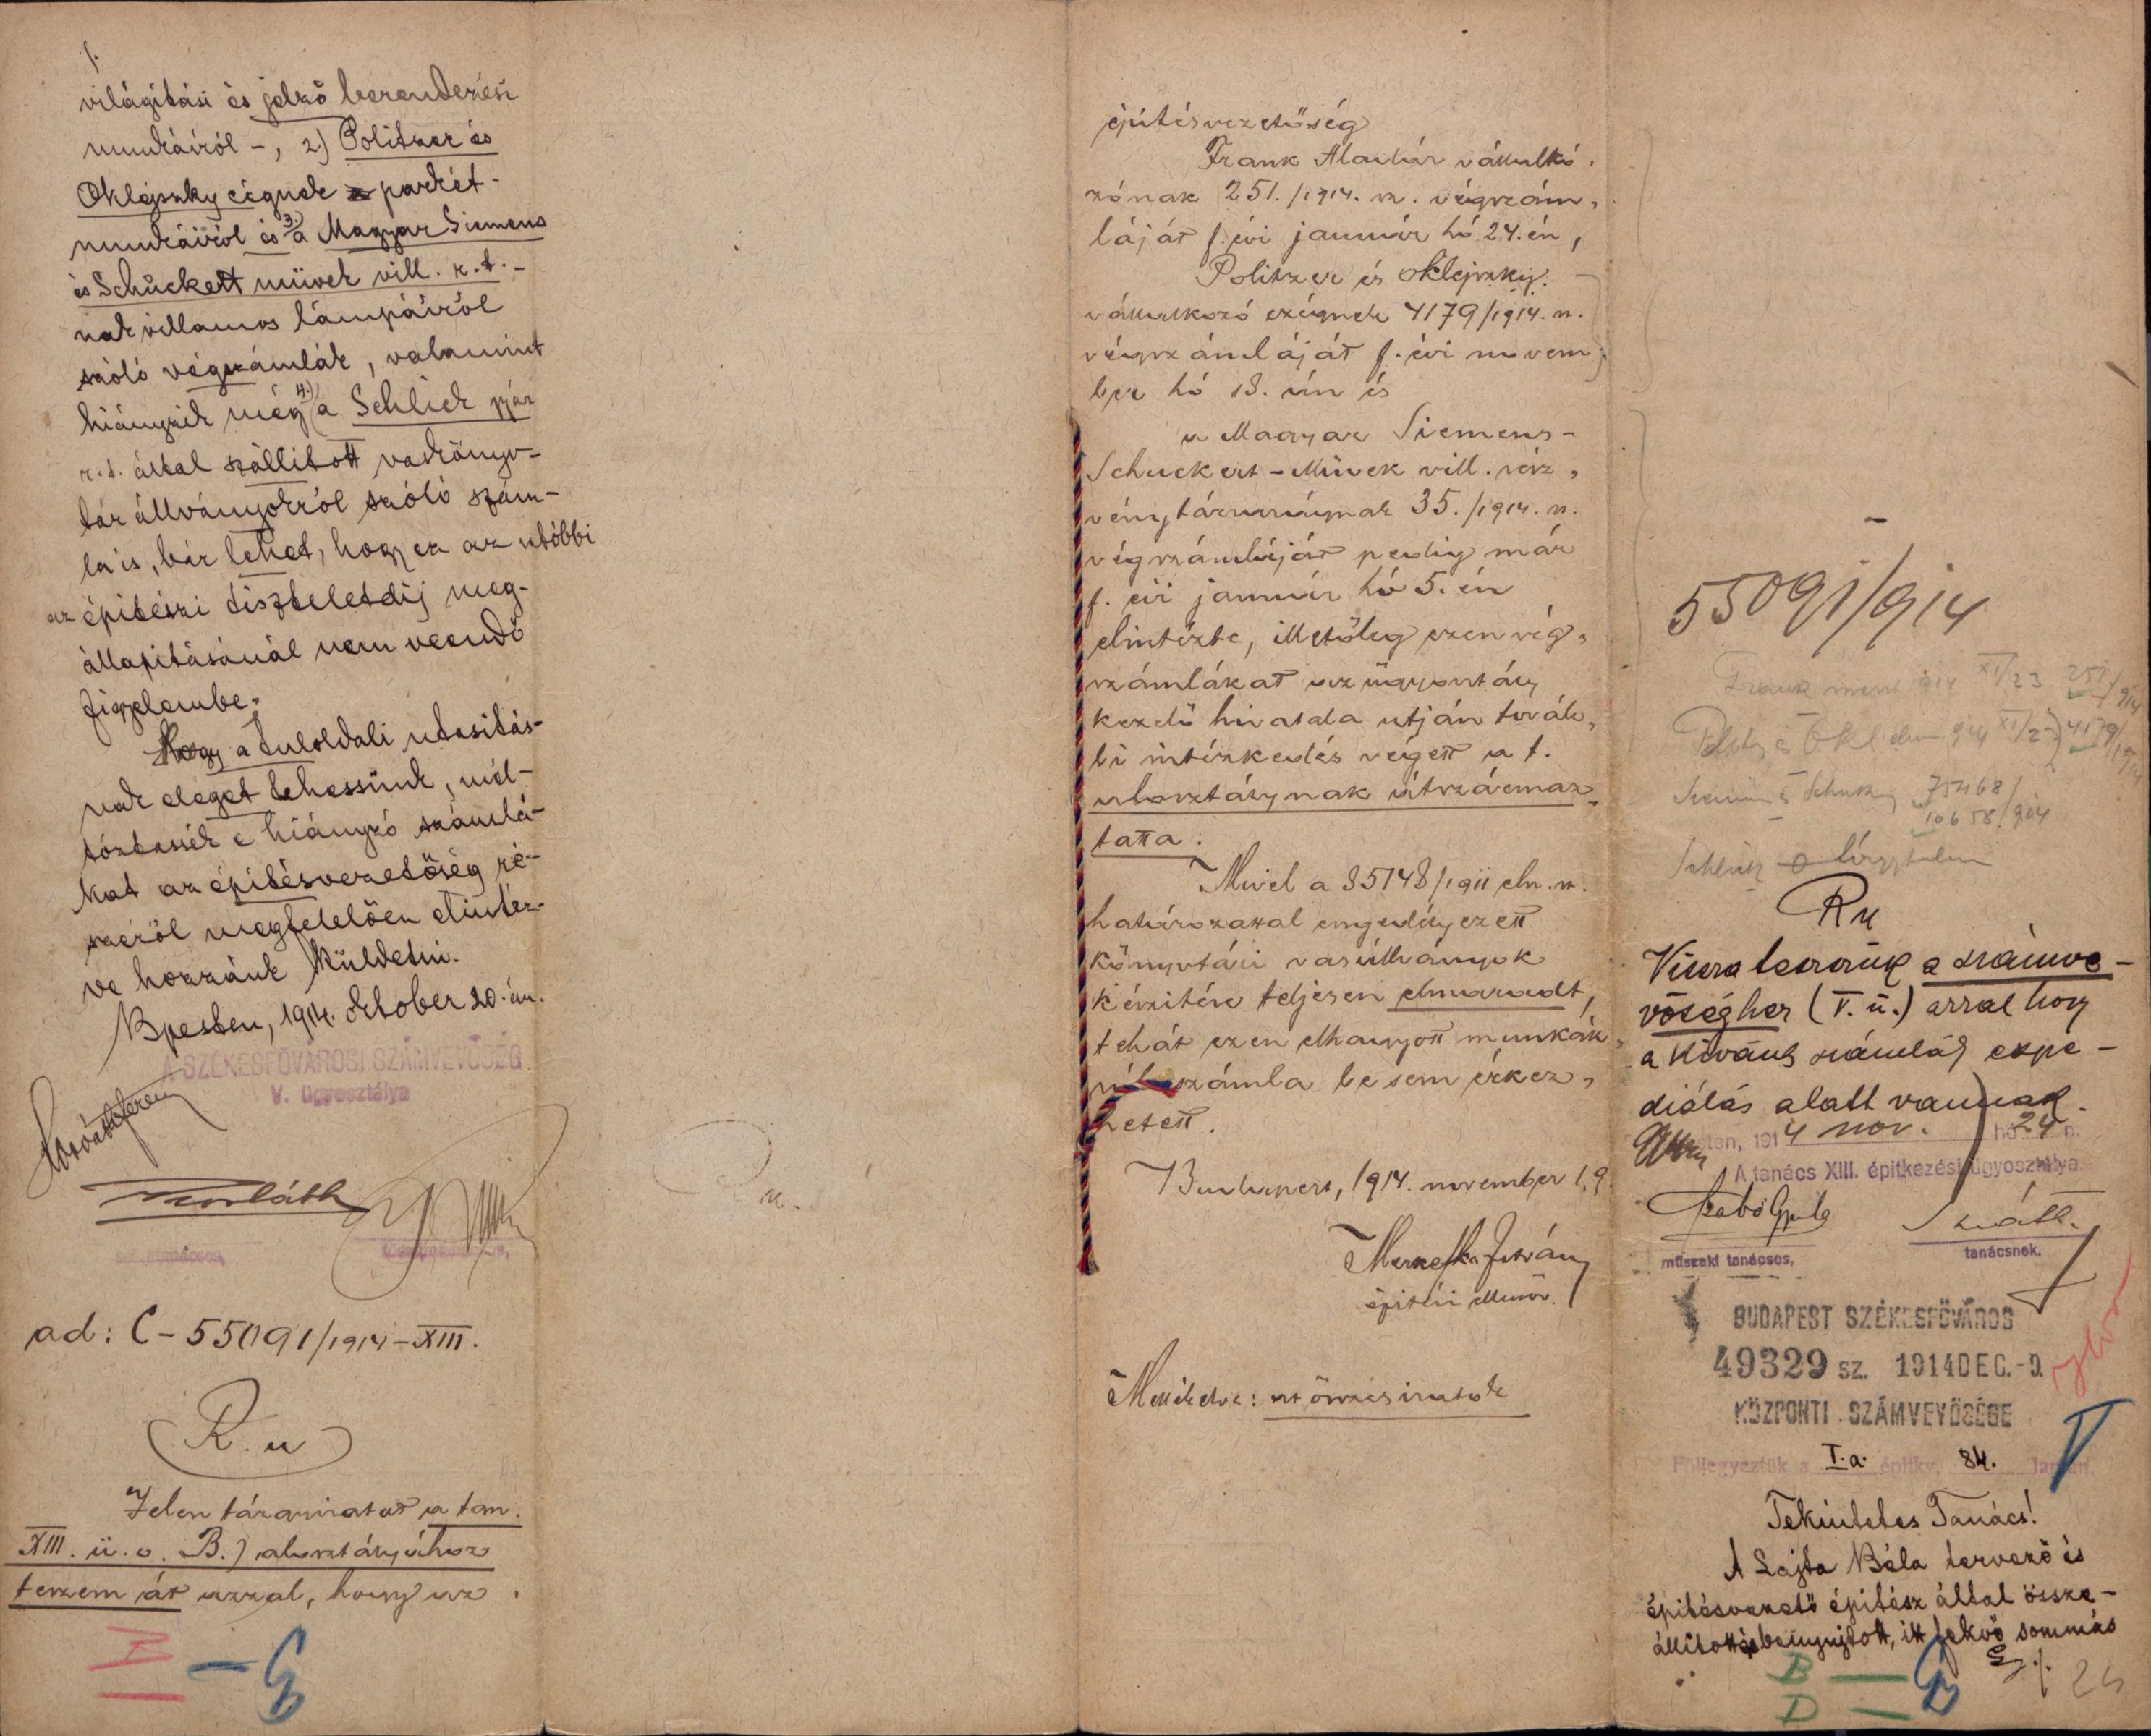 világitási és jelző berendezési
munkáiról –, 2.) Politzer és
Oklejszky cégnek parkét-
munkáiról és 3.) a Magyar Siemens
és Schuckert müvek vill. r. t.-
nak villamos lámpáiról
szóló végszámlák, valamint
hiányzik még 4.) a Schlick gyár
r.t. által szállitott vaskönyv-
tár állványokról szóló szám-
la is, bár lehet, hogy ez az utóbbi
az épitészi tiszteletdij meg-
állapitásánál nem veendő
figyelembe.
Hogy a tuloldali utasitás-
nak eleget tehessünk, mél-
tóztassék e hiányzó számlá-
kat az épitésvezetőség ré-
széről megfelelően elintéz-
ve hozzánk küldetni.
Bpesten, 1914. október 20.-án.
A SZÉKESFŐVÁROSI SZÁMVEVŐSÉG
V. ügyosztálya
ad: C – 55091/1914 – XIII.
R. u
Jelen tárgyiratot a tan.
XIII. ü. o. B.) alosztályához
teszem át azzal, hogy az
épitésvezetőség
Frank Aladár vállalko-
zónak 251./1914. sz. végszám-
láját f. évi január hó 24.én,
Politzer és Oklejszky.
vállalkozó czégnek 4179/1914. sz.
végszámláját f. évi novem-
ber hó 18. án és
a Magyar Siemens-
Schuckert-Müvek vill. rész-
vénytársaságnak 35./1914. sz.
végszámláját pedig már
f. évi január hó 5. én
elintézte, illetőleg ezen vég-
számlákat az ügyosztály
kezelő hivatala utján továb-
bi intézkedés végett a t.
alosztálynak átszármaz-
tatta.
Mivel a 85748/1911 eln. sz.
határozattal engedélyezett
könyvtári vasállványok
készitése teljesen elmaradt,
tehát ezen elhagyott munkák-
ról számla be sem érkez-
hetett.
Budapest, 1914. november 19.
épitési ellenőr.
Mellékelve: az összes iratok
55091/914
Frank 914 XI/23 251/914
914 XI/23 4179/1914
75468/
10658/914
Schlick
Ru
Vissza tesszük a számve-
vőséghez (V. ü.) azzal hogy
a kivánt számlák expe-
diálás alatt vannak.
1914 nov. hó 24 n.
A tanács XIII. épitkezési ügyosztálya.
műszaki tanácsos,
tanácsnok.
BUDAPEST SZÉKESFŐVÁROS
49329 sz. 1914 DEC. -9.
KÖZPONTI SZÁMVEVŐSÉGE
V
Följegyeztük a I.a. épitkv. 84. lapján.
Tekintetes Tanács!
A Lajta Béla tervező és
épitésvezető épitész által össze-
állitott és benyujtott, itt fekvő sommás
B –
D –
24